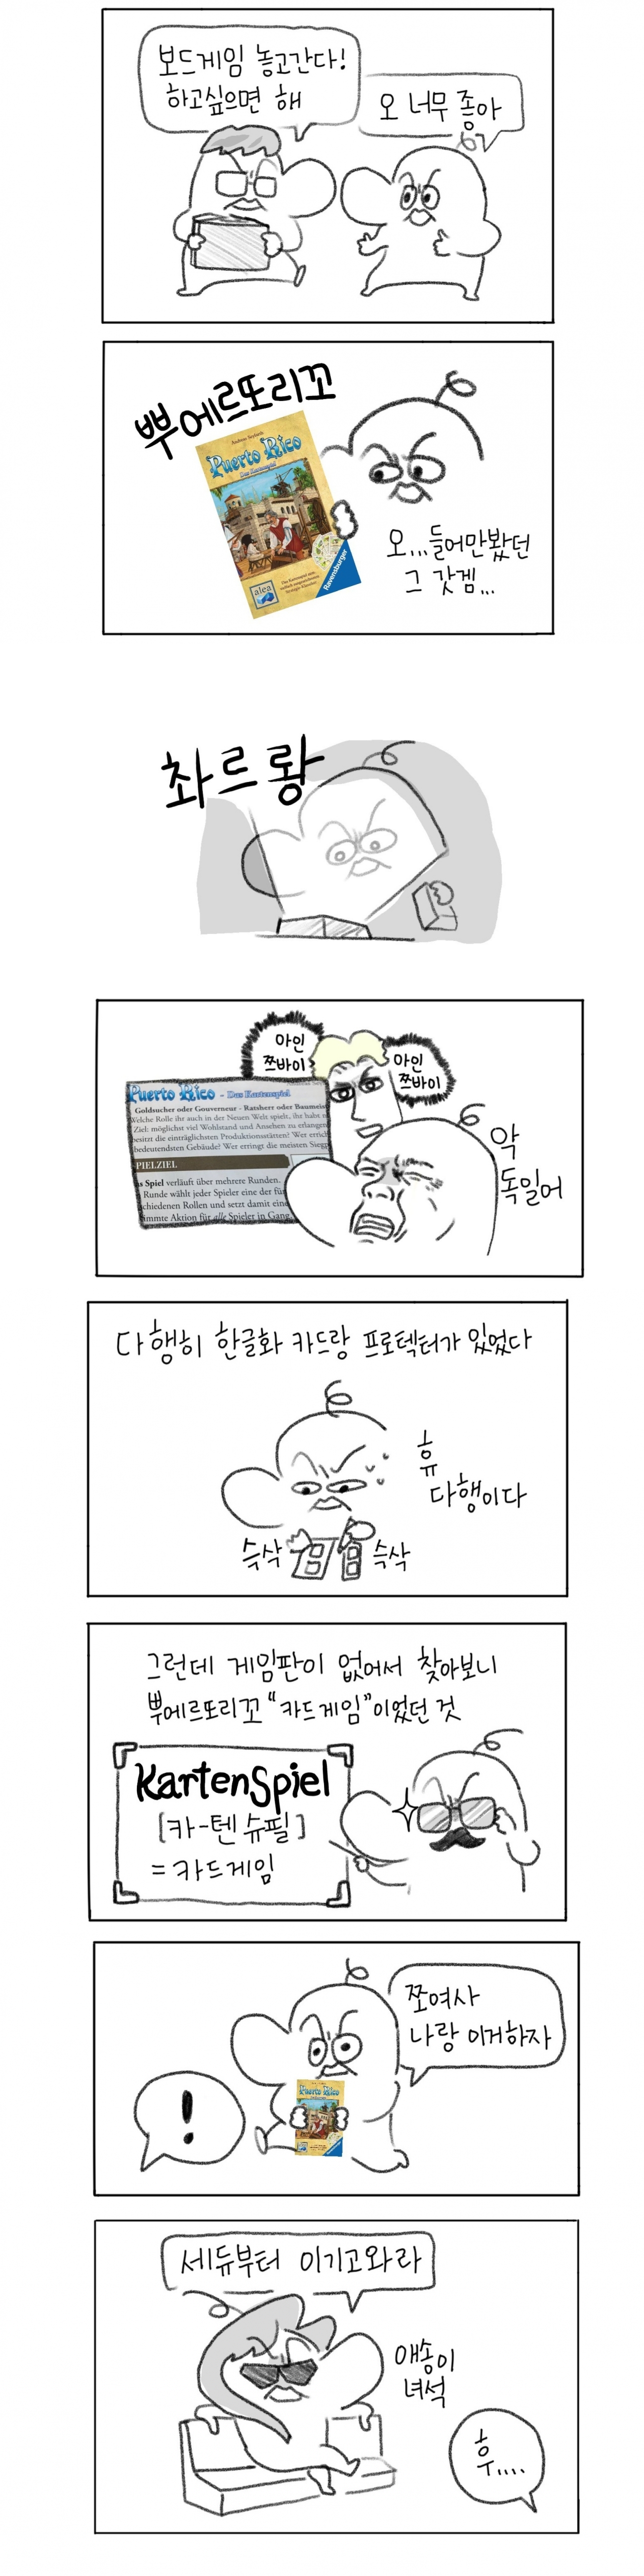 보드게임 놓고간다!
하고싶으면 해
오 너무 좋아
뿌에르또리꼬
Andreas Seyfarth
Puerto Rico
Das Kartenspiel
alea
Ravensburger
오...들어만봤던
그 갓겜...
촤르롹
아인
쯔바이
아인
쯔바이
Puerto Rico - Das Kartenspiel
Goldsucher oder Gouverneur - Ratsherr oder Baumeis
Welche Rolle ihr auch in der Neuen Welt spielt, ihr habt
Ziel: möglichst viel Wohlstand und Ansehen zu erlangen
besitzt die einträglichsten Produktionsstätten? Wer errich
bedeutendsten Gebäude? Wer erringt die meisten Siegp
PIELZIEL
s Spiel verläuft über mehrere Runden.
Runde wählt jeder Spieler eine der fü
chiedenen Rollen und setzt damit eine
immte Aktion für alle Spieler in Gang.
악
독일어
다행히 한글화 카드랑 프로텍터가 있었다
휴
다행이다
슥삭
슥삭
그런데 게임판이 없어서 찾아보니
뿌에르또리꼬 “카드게임”이었던 것
KartenSpiel
[카-텐 슈필]
= 카드게임
쪼여사
나랑 이거하자
!
Puerto Rico
세듀부터 이기고와라
애송이
녀석
후....